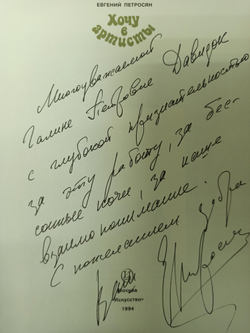 ЕВГЕНИЙ ПЕТРОСЯН
Хочу в
артисты
Многоуважаемой
Галине Петровне Давидюк
с глубокой признательностью
за эту работу, за бес-
сонные ночи, за наше
взаимопонимание.
С пожеланием добра
Москва
"Искусство"
1994